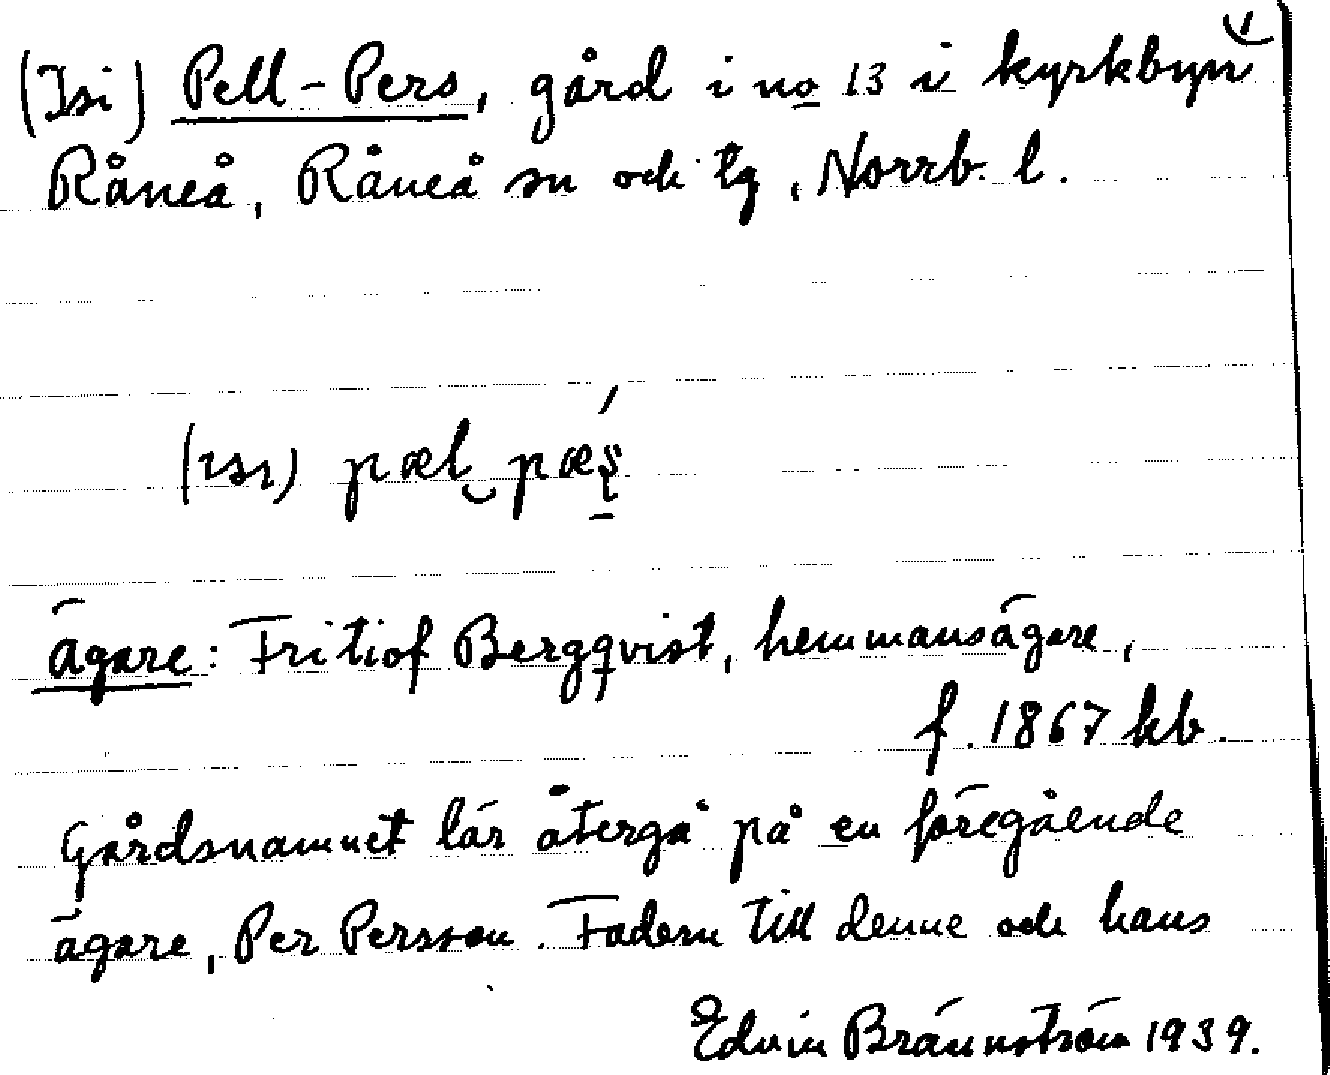 (Isi) Pell-Pers, gård i no 13 i kyrkbyn
Råneå, Råneå sn och tg, Norrb. l.
(ɪsɪ) pæl pæ̨ṣ́
ägare: Fritiof Bergqvist, hemmansägare,
f. 1867 kb.
Gårdsnamnet lär återgå på en föregående
ägare, Per Persson. Fadern till denne och hans
Edvin Brännström 1939.